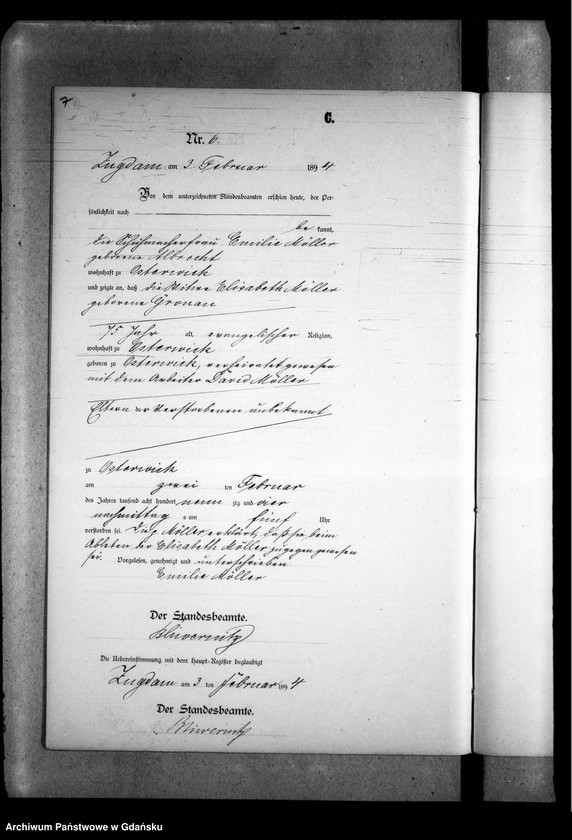 7
C.
Nr. 6.
Zugdam am 3. Februar 1894
Vor dem unterzeichneten Standesbeamten erschien heute, der Per-
sönlichkeit nach
be kannt,
die Schuhmacherfrau Emilie Möller
geborene Albrecht
wohnhaft zu Osterwick
und zeigte an, daß die Witwe Elisabeth Möller
geborene Gronau
75 Jahr alt, evangelischer Religion,
wohnhaft zu Osterwick
geboren zu Osterwick, verheiratet gewesen
mit dem Arbeiter David Möller
Eltern der Verstorbenen unbekannt
zu Osterwick
am zwei ten Februar
des Jahres tausend acht hundert neun zig und vier
nachmittag s um fünf Uhr
verstorben sei. Die p Möller erklärt, daß sie beim
Ableben der Elisabeth Möller zugegen gewesen
sei. Vorgelesen, genehmigt und unterschrieben.
Emilie Möller
Der Standesbeamte.
Die Uebereinstimmung mit dem Haupt-Register beglaubigt
Zugdam am 3 ten Februar 1894
Der Standesbeamte.
Archiwum Państwowe w Gdańsku